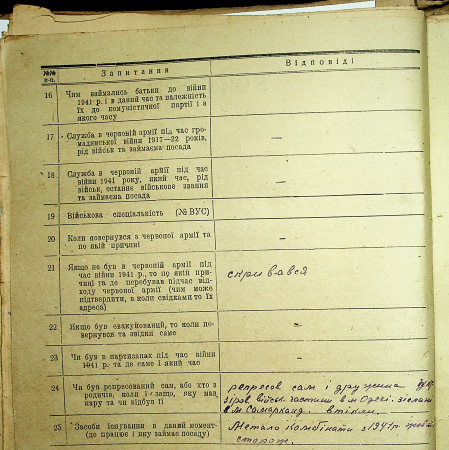 №№
п.п.
Запитання
Відповіді
16
Чим займались батьки до війни
1941 р. і в даний час та належність
їх до комуністичної партії і з
якого часу
17
Служба в червоній армії під час гро-
мадянської війни 1917—22 років,
рід військ та займаєма посада
—
18
Служба в червоній армії під час
війни 1941 року, який час, рід
військ, останнє військове звання
та займаєма посада
—
19
Військова спеціальність (№ ВУС)
20
Коли повернувся з червоної армії та
по якій причині
—
21
Якщо не був в червоній армії під
час війни 1941 р., то по якій при-
чині та де перебував підчас від-
ходу червоної армії (чим може
підтвердити, а коли свідками то їх
адреса)
скривався
22
Якщо був евакуйований, то коли по-
вернувся та звідки саме
—
23
Чи був в партизанах під час війни
1941 р. та де саме і який час
—
24
Чи був репресований сам, або хто з
родичів, коли і за що, яку мав
кару та чи відбув її
репресов сам і дружина
війск. частини в м Одесі. зіслані
в м Самарканд. втікли.
25
Засоби існування в даний момент
(де працює і яку займає посаду)
Метало комбінати з 1941 р.
сторож.